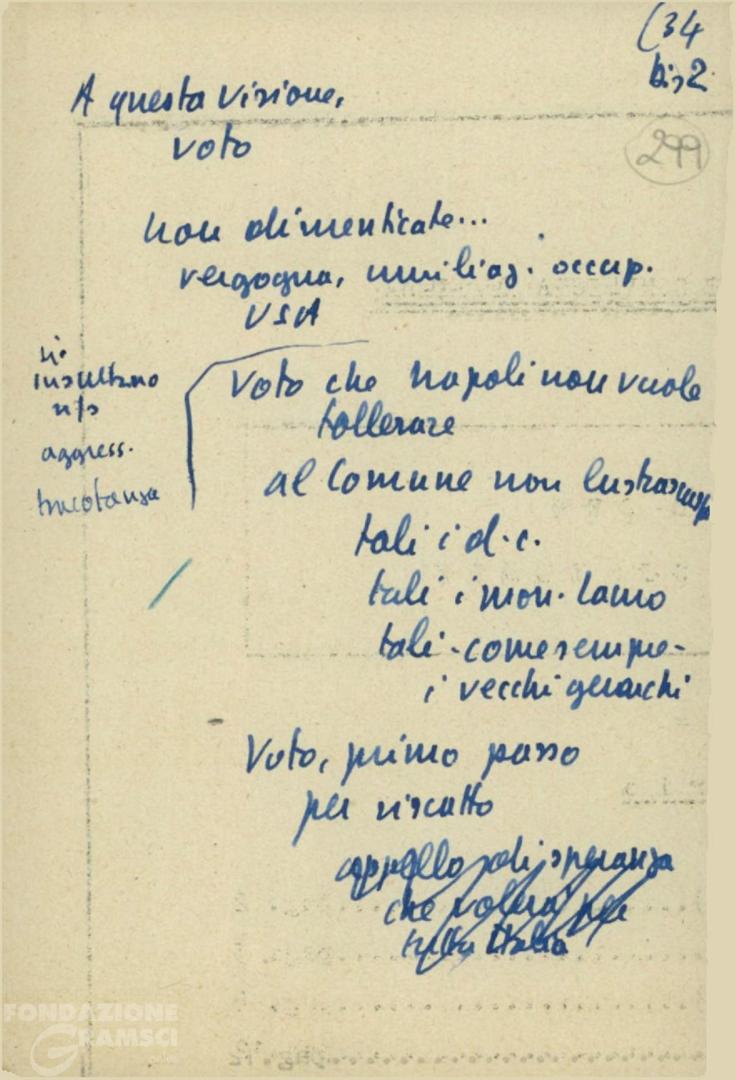 (34
bis2
299
A questa visione,
voto
non dimenticate...
vergogna, umiliaz. occup.
USA
si
insultano
n/s
aggress.
tracotanza
Voto che Napoli non vuole
tollerare
al Comune non lustrascarpe
tali i d.c.
tali i mon. Lauro
tali - come sempre -
i vecchi gerarchi
Voto, primo passo
per riscatto
appello di speranza
che volerà per
tutta Italia
FONDAZIONE
GRAMSCI